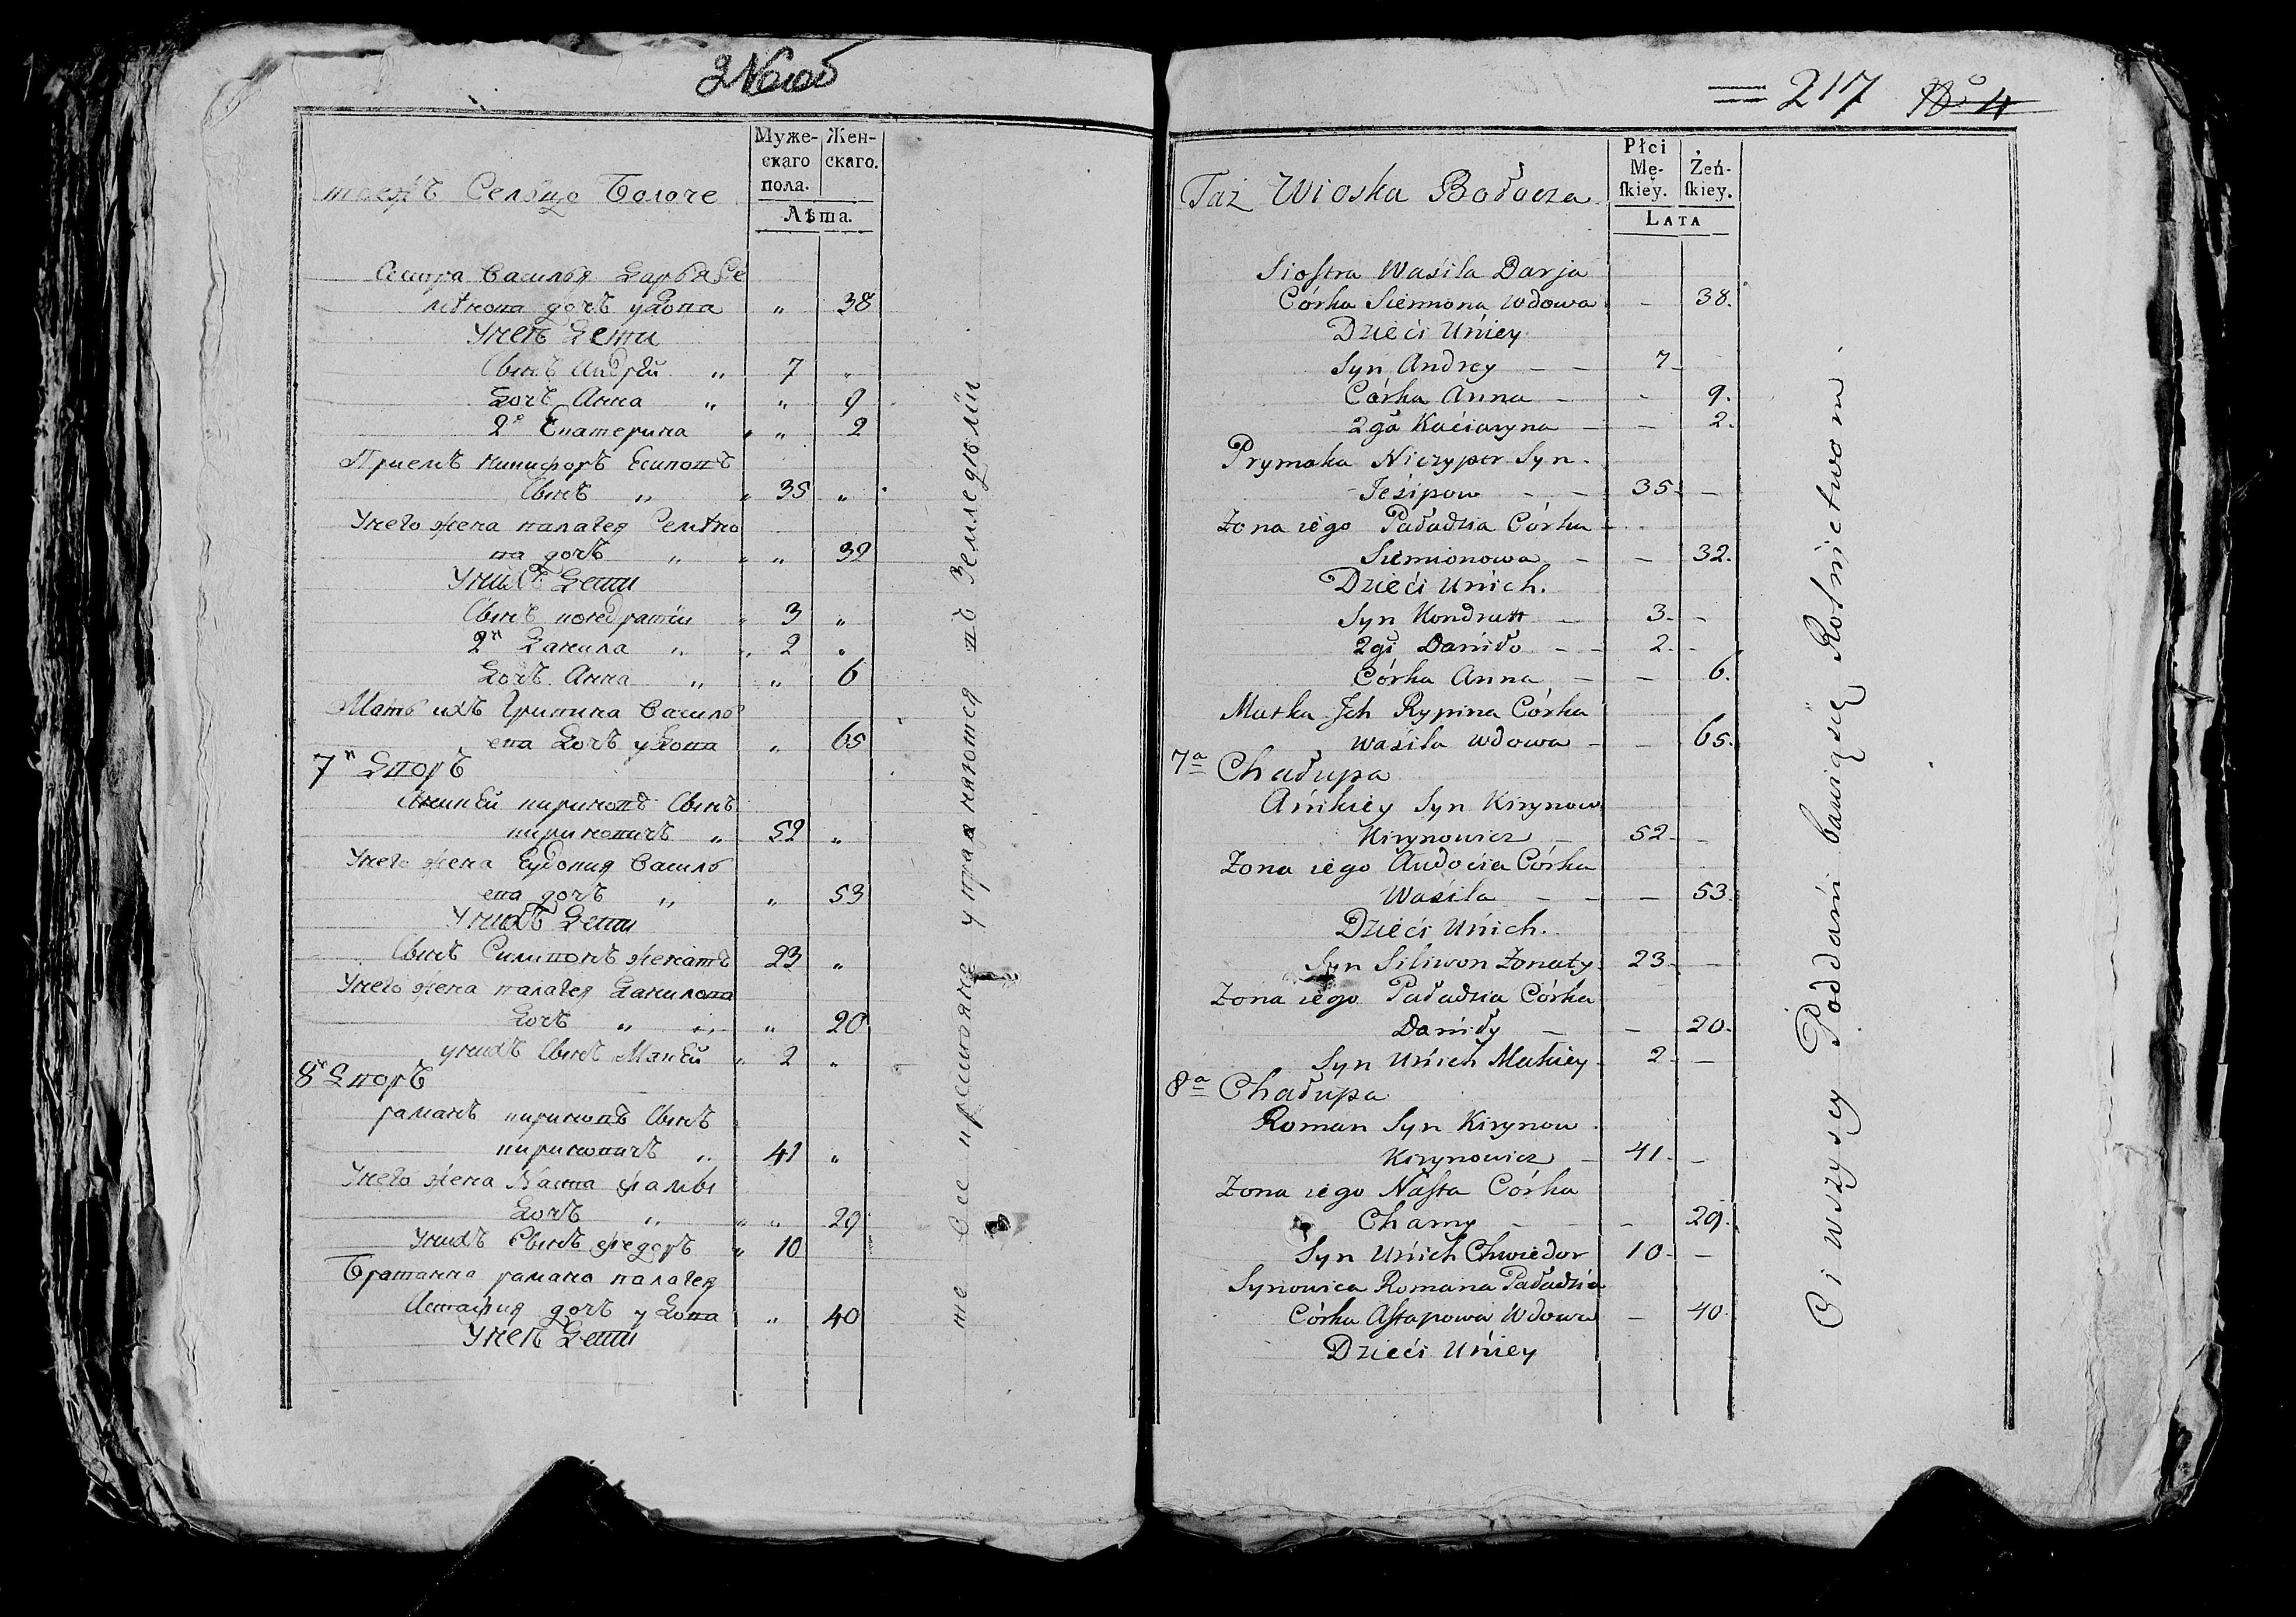 Муже-
скаго
пола.
Жен-
скаго.
Лѣта.
тоежъ Сельцо Болоче
Сестра Василья Дарья Се
мѣнова дочъ удова " 38
Унеѣ Дети
Сынъ Андрѣй " 7 "
Дочъ Анна " " 9
2я Екатерина " " 2
Приемъ никифоръ Есиповъ
Сынъ " " 35 "
Унего жена палагея Семѣно
ва дочъ " " " 32
Унихъ Дети
Сынъ кондратѣй " 3 "
2й Данила " " 2 "
Дочъ Анна " " 6
Мать ихъ Грипина Василь
ева Дочъ удова " 65
7й Дворъ
Аникѣй кириновъ Сынъ
кириновичъ " 52 "
Унего жена Еудокия Василь
ева дочъ " " 53
Унихъ Дети
Сынъ Силивонъ женатъ 23 "
Унего жена палагея Данилова
Дочъ " " " 20
унихъ Сынъ Макѣй " 2 "
8й Дворъ
раманъ кириновъ Сынъ
кириновичъ " 41 "
Унего жена Наста фамы
Дочъ " " " 29
Унихъ Сынъ федоръ " 10
Братанка рамана палагея
Астафия дочъ удова " 40
Унеѣ Дети
те Все крестьяне упражняются въ Земледѣлiи
= 217 No 4
Płci
Mę-
ſkiey.
Żeń-
ſkiey.
LATA
Taż Wioska Bołocza
Siostra Wasila Darja
Córka Siemiona wdowa - 38.
Dzieći Uniey
Syn Andrey - - 7 -
Córka Anna - - 9.
2ga Kaciaryna - - 2.
Prymaka Niczyper Syn
Jesipow - - 35. -
Żona iego Paładzia Córka
Siemionowa - - 32.
Dzieći Unich.
Syn Kondratt - 3. -
2gi Daniło - - 2. -
Córka Anna - - 6.
Matka Jch Rypina Córka
Wasila wdowa - - 65.
7a Chałupa
Anikiey Syn Kirynow
Kirynowicz - 52. -
Żona iego Audocia Córka
Wasila - - - 53.
Dzieći Unich.
Syn Siliwon Żonaty. 23. -
Żona iego Paładzia Córka
Daniły - - 20.
Syn Unich Makiey. 2. -
8a Chałupa
Roman Syn Kirynow
Kirynowicz - 41. -
Żona iego Nasta Córka
Chamy - - - 29.
Syn Unich Chwiedor 10. -
Synowica Romana Paładzia
Córka Astapowa Wdowa - 40.
Dzieći Uniey
Ci wszyscy Poddani bawią się Rolnictwom.